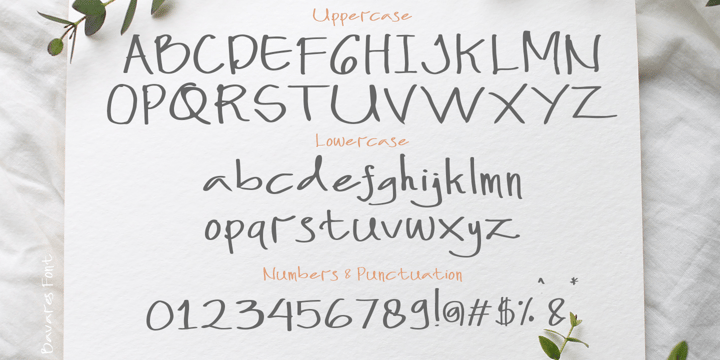 Uppercase
ABCDEFGHIJKLMN
OPQRSTUVWXYZ
Lowercase
abcdefghijklmn
opqrstuvwxyz
Numbers & Punctuation
0123456789!@#$%^&*
Davares Font